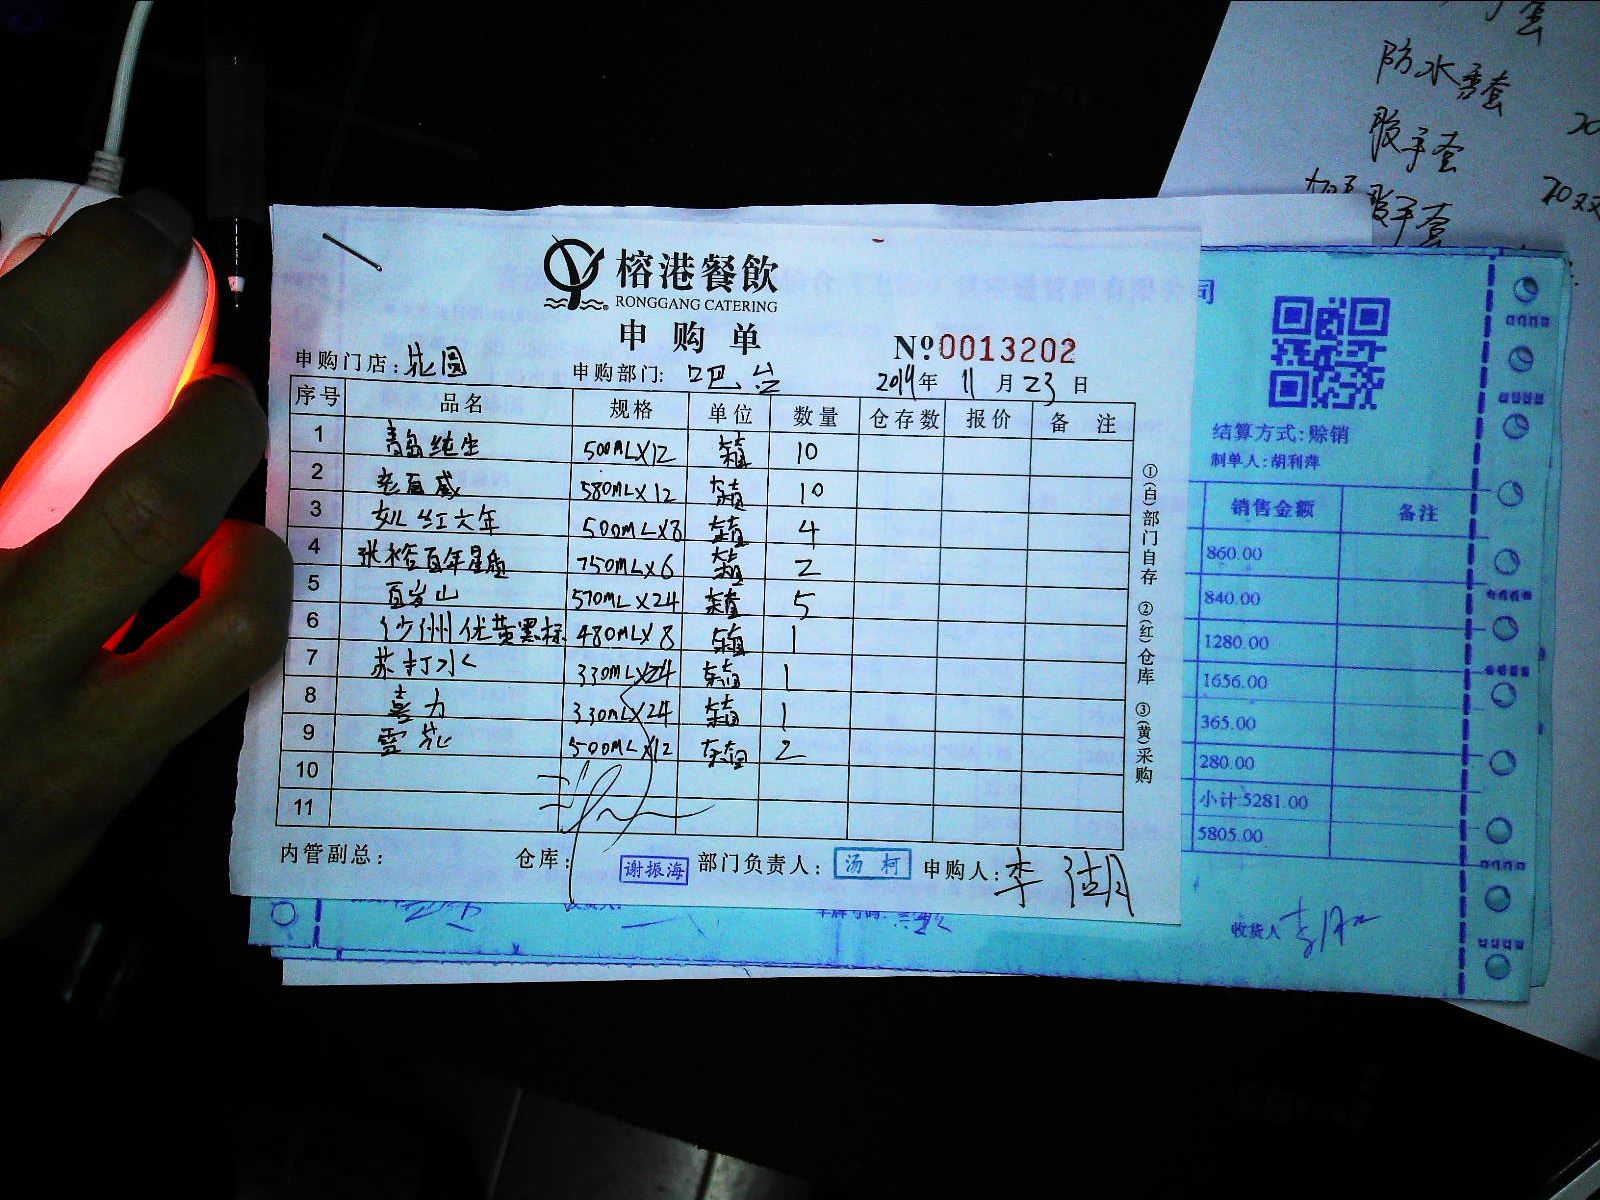 防水手套 20
胶手套
加厚胶手套 20双
榕港餐飲
RONGGANG CATERING
申购单
№0013202
申购门店：花园 申购部门：吧台 2019年 11月23日
序号 品名 规格 单位 数量 仓存数 报价 备注
1 青岛纯生 500ML×12 箱 10
2 老百威 580ML×12 箱 10
3 女儿红六年 500ML×8 箱 4
4 张裕百年星座 750ML×6 箱 2
5 百岁山 570ML×24 箱 5
6 沙洲优黄黑标 480ML×8 箱 1
7 苏打水 330ML×24 箱 1
8 喜力 330ML×24 箱 1
9 雪花 500ML×12 箱 2
10
11
内管副总： 仓库： 谢振海 部门负责人： 汤柯 申购人：李湖
①(白)部门自存 ②(红)仓库 ③(黄)采购
司
结算方式:赊销
制单人:胡利萍
销售金额 备注
860.00
840.00
1280.00
1656.00
365.00
280.00
小计:5281.00
5805.00
收货人